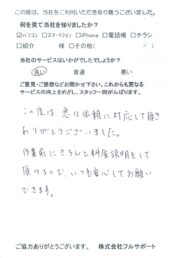 この度は、当社をご利用いただき有り難うございました。
何を見て当社を知りましたか?
☑パソコン □スマートフォン □iPhone □電話帳 □チラシ
□紹介 様 □その他( )
当社のサービスはいかがでしたでしょうか?
良い 普通 悪い
ご意見・ご感想などお聞かせ下さい。これからも更なる
サービスの向上をめざし、スタッフ一同がんばります。
この度は、急な依頼に対応して頂き
ありがとうございました。
作業前にきちんと料金説明をして
頂けるので、いつも安心してお願い
できます。
ご協力ありがとうございます。 株式会社フルサポート